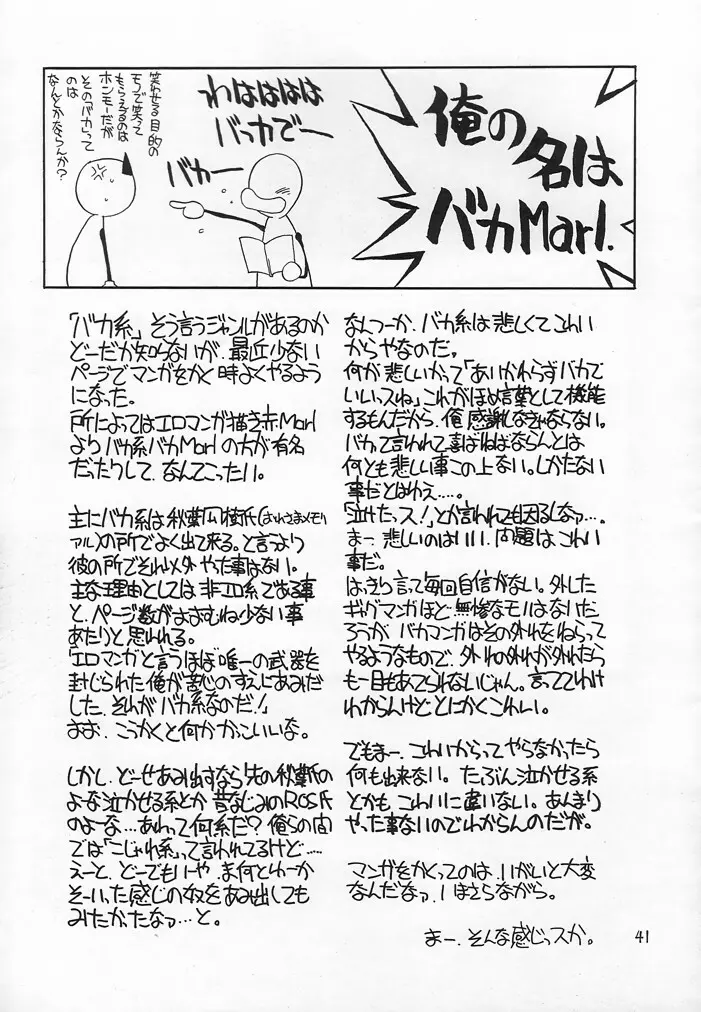 俺の
名は
バカMarl.
わはははは
バッカでー
バカー
笑わせる目的の
モノで笑って
もらえるのは
ホンモーだが
その「バカ」って
のは
なんとかならんか?
「バカ系」そう言うジャンルがあるのか
どーだか知らないが、最近少ない
ページでマンガをかく時よくやるよう
になった。
所によってはエロマンガ描き赤Marl
よりバカ系バカMarlの方が有名
だったりして、なんてこったい。
主にバカ系は秋葉凪樹氏(おれさまメモリ
アル)の所でよく出て来る。と言うより
彼の所でそれ以外やった事はない。
主な理由としては非エロ系である事
と、ページ数がおおむね少ない事
あたりと思われる。
「エロマンガと言うほぼ唯一の武器を
封じられた俺が苦心のすえにあみだ
した、それがバカ系なのだ!」
おお、こうかくと何かかっこいいな。
しかし、どーせあみ出すなら先の秋葉氏の
よーな泣かせる系とか昔なじみのROS氏
のよーな…あれって何系だ?俺らの間
では「こじゃれ系」って言われてるけど……
えーと、どーでもいいや、ま何とゆーか
そーいった感じの奴をあみ出しても
みたかったなァ…と。
なんつーか、バカ系は悲しくてこわい
からやなのだ。
何が悲しいかって「あいかわらずバカで
いいっスね」これがほめ言葉として機能
するもんだから、俺感謝しなきゃならない。
バカって言われて喜ばねばならんとは
何とも悲しい事この上ない。しかたない
事だとはゆえ……。
「泣けたっス!」とか言われても困るしなァ…。
まー、悲しいのはいい、問題はこわい
事だ。
はっきり言って毎回自信がない。外した
ギャグマンガほど無惨なモノはないだ
ろうが、バカマンガはその外れをねらって
やるようなもので、外れの外れが外れたら
も一目もあてられないじゃん。言っててわけ
わからんけどとにかくこわい。
でもまー、こわいからってやらなかったら
何も出来ない。たぶん泣かせる系
とかも、こわいに違いない。あんまり
やった事ないのでわからんのだが。
マンガをかくってのは、いがいと大変
なんだなァ、いまさらながら。
まー、そんな感じっスか。
41